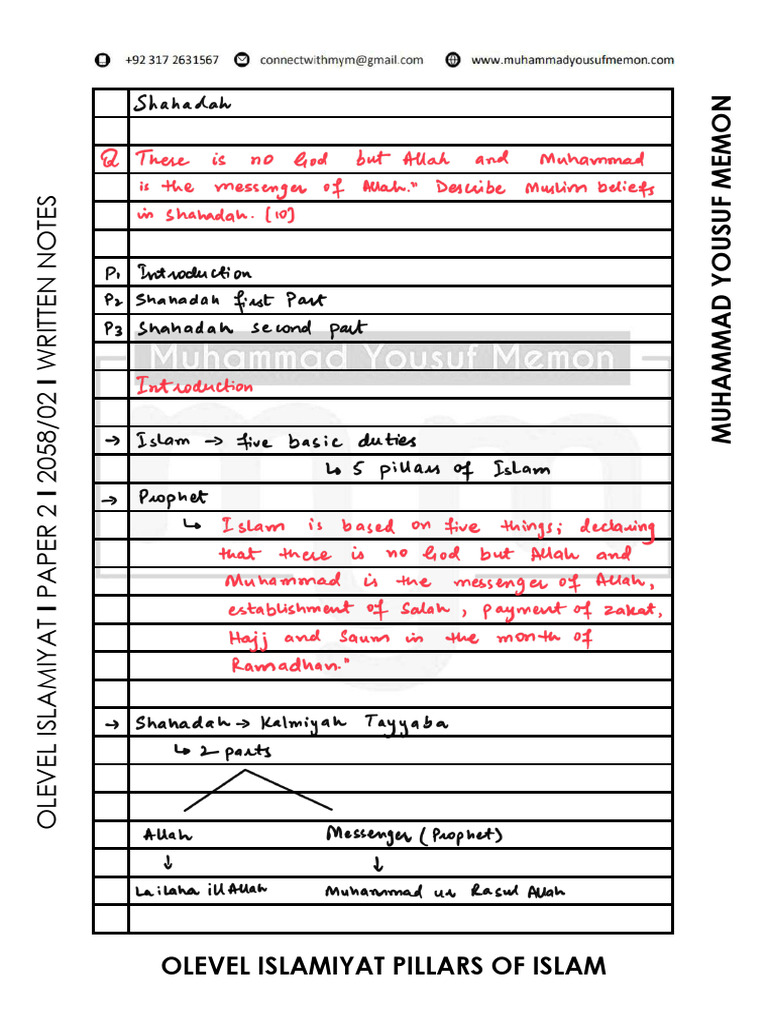 +92 317 2631567 connectwithmym@gmail.com www.muhammadyousufmemon.com
Shahadah
Q There is no God but Allah and Muhammad
is the messenger of Allah." Describe Muslim beliefs
in Shahadah. [10]
P1 Introduction
P2 Shahadah first Part
P3 Shahadah second part
Muhammad Yousuf Memon
Introduction
→ Islam → five basic duties
↳ 5 pillars of Islam
→ Prophet
↳ Islam is based on five things; declaring
that there is no God but Allah and
Muhammad is the messenger of Allah,
establishment of Salah, payment of zakat,
Hajj and Saum in the month of
Ramadhan."
→ Shahadah → Kalmiyah Tayyaba
↳ 2 parts
Allah Messenger (Prophet)
↓ ↓
La ilaha ill Allah Muhammad ur Rasul Allah
OLEVEL ISLAMIYAT PILLARS OF ISLAM
OLEVEL ISLAMIYAT I PAPER 2 I 2058/02 I WRITTEN NOTES
MUHAMMAD YOUSUF MEMON
mym